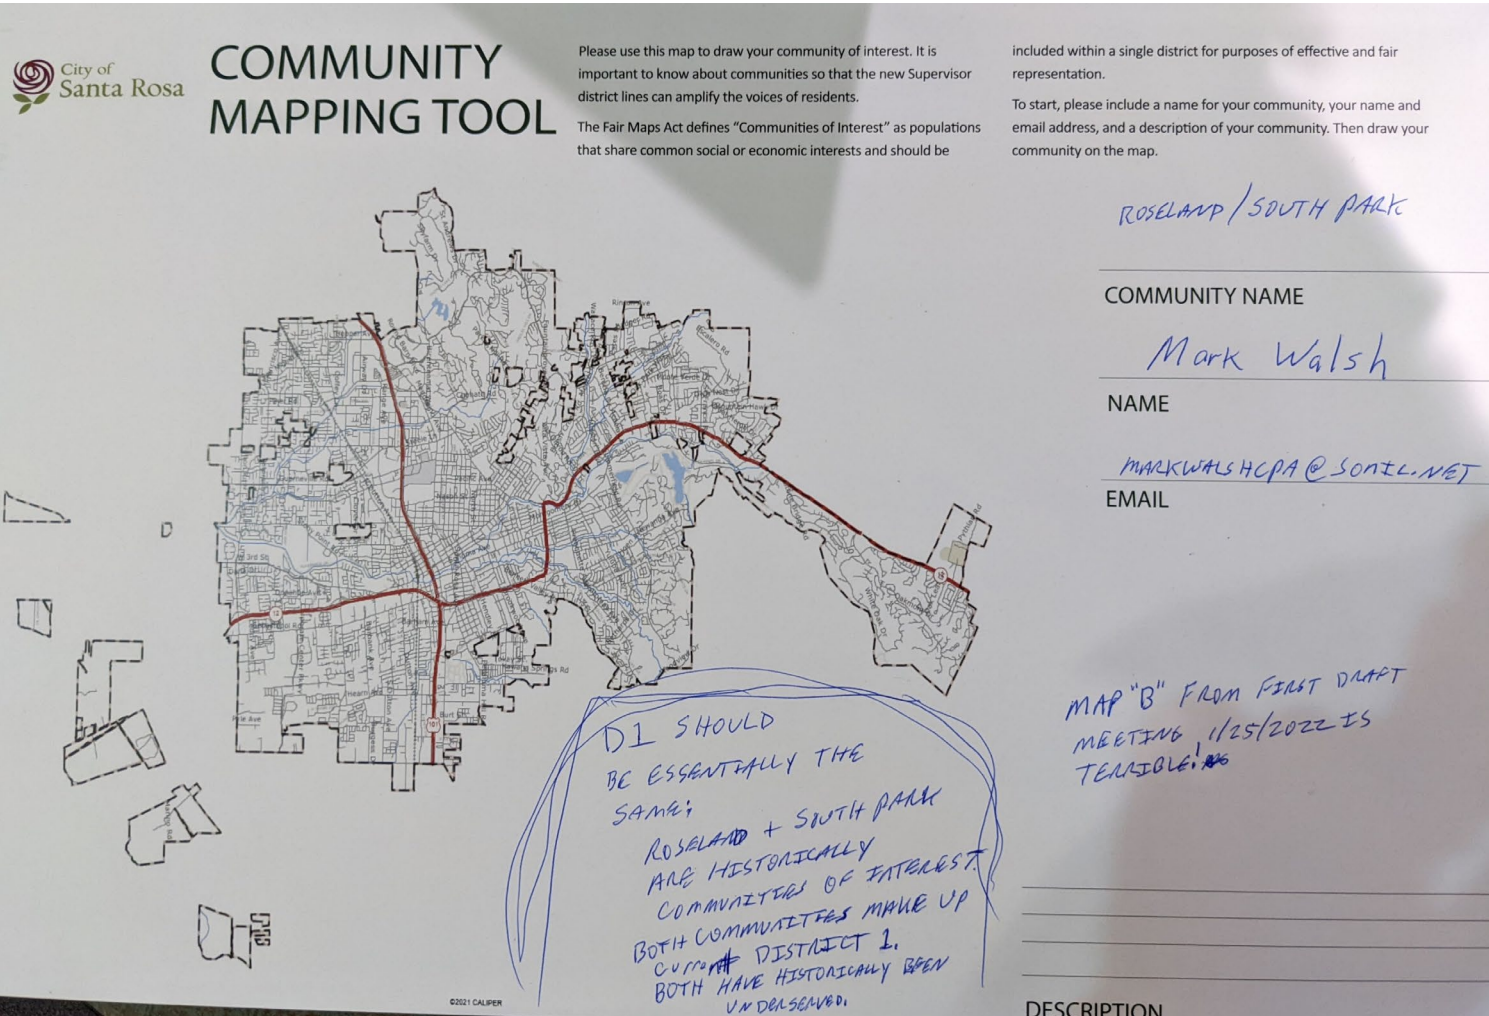 City of
Santa Rosa
COMMUNITY
MAPPING TOOL
Please use this map to draw your community of interest. It is
important to know about communities so that the new Supervisor
district lines can amplify the voices of residents.
The Fair Maps Act defines “Communities of Interest” as populations
that share common social or economic interests and should be
included within a single district for purposes of effective and fair
representation.
To start, please include a name for your community, your name and
email address, and a description of your community. Then draw your
community on the map.
ROSELAND/SOUTH PARK
COMMUNITY NAME
Mark Walsh
NAME
MARKWALSHCPA@SONIC.NET
EMAIL
MAP "B" FROM FIRST DRAFT
MEETING 1/25/2022 IS
TERRIBLE!
D1 SHOULD
BE ESSENTIALLY THE
SAME:
ROSELAND + SOUTH PARK
ARE HISTORICALLY
COMMUNITIES OF INTEREST.
BOTH COMMUNITIES MAKE UP
current DISTRICT 1.
BOTH HAVE HISTORICALLY BEEN
UNDERSERVED.
3rd St
Hearn Ave
Springs Rd
Pythian Rd
White Oak Dr
12
101
©2021 CALIPER
DESCRIPTION